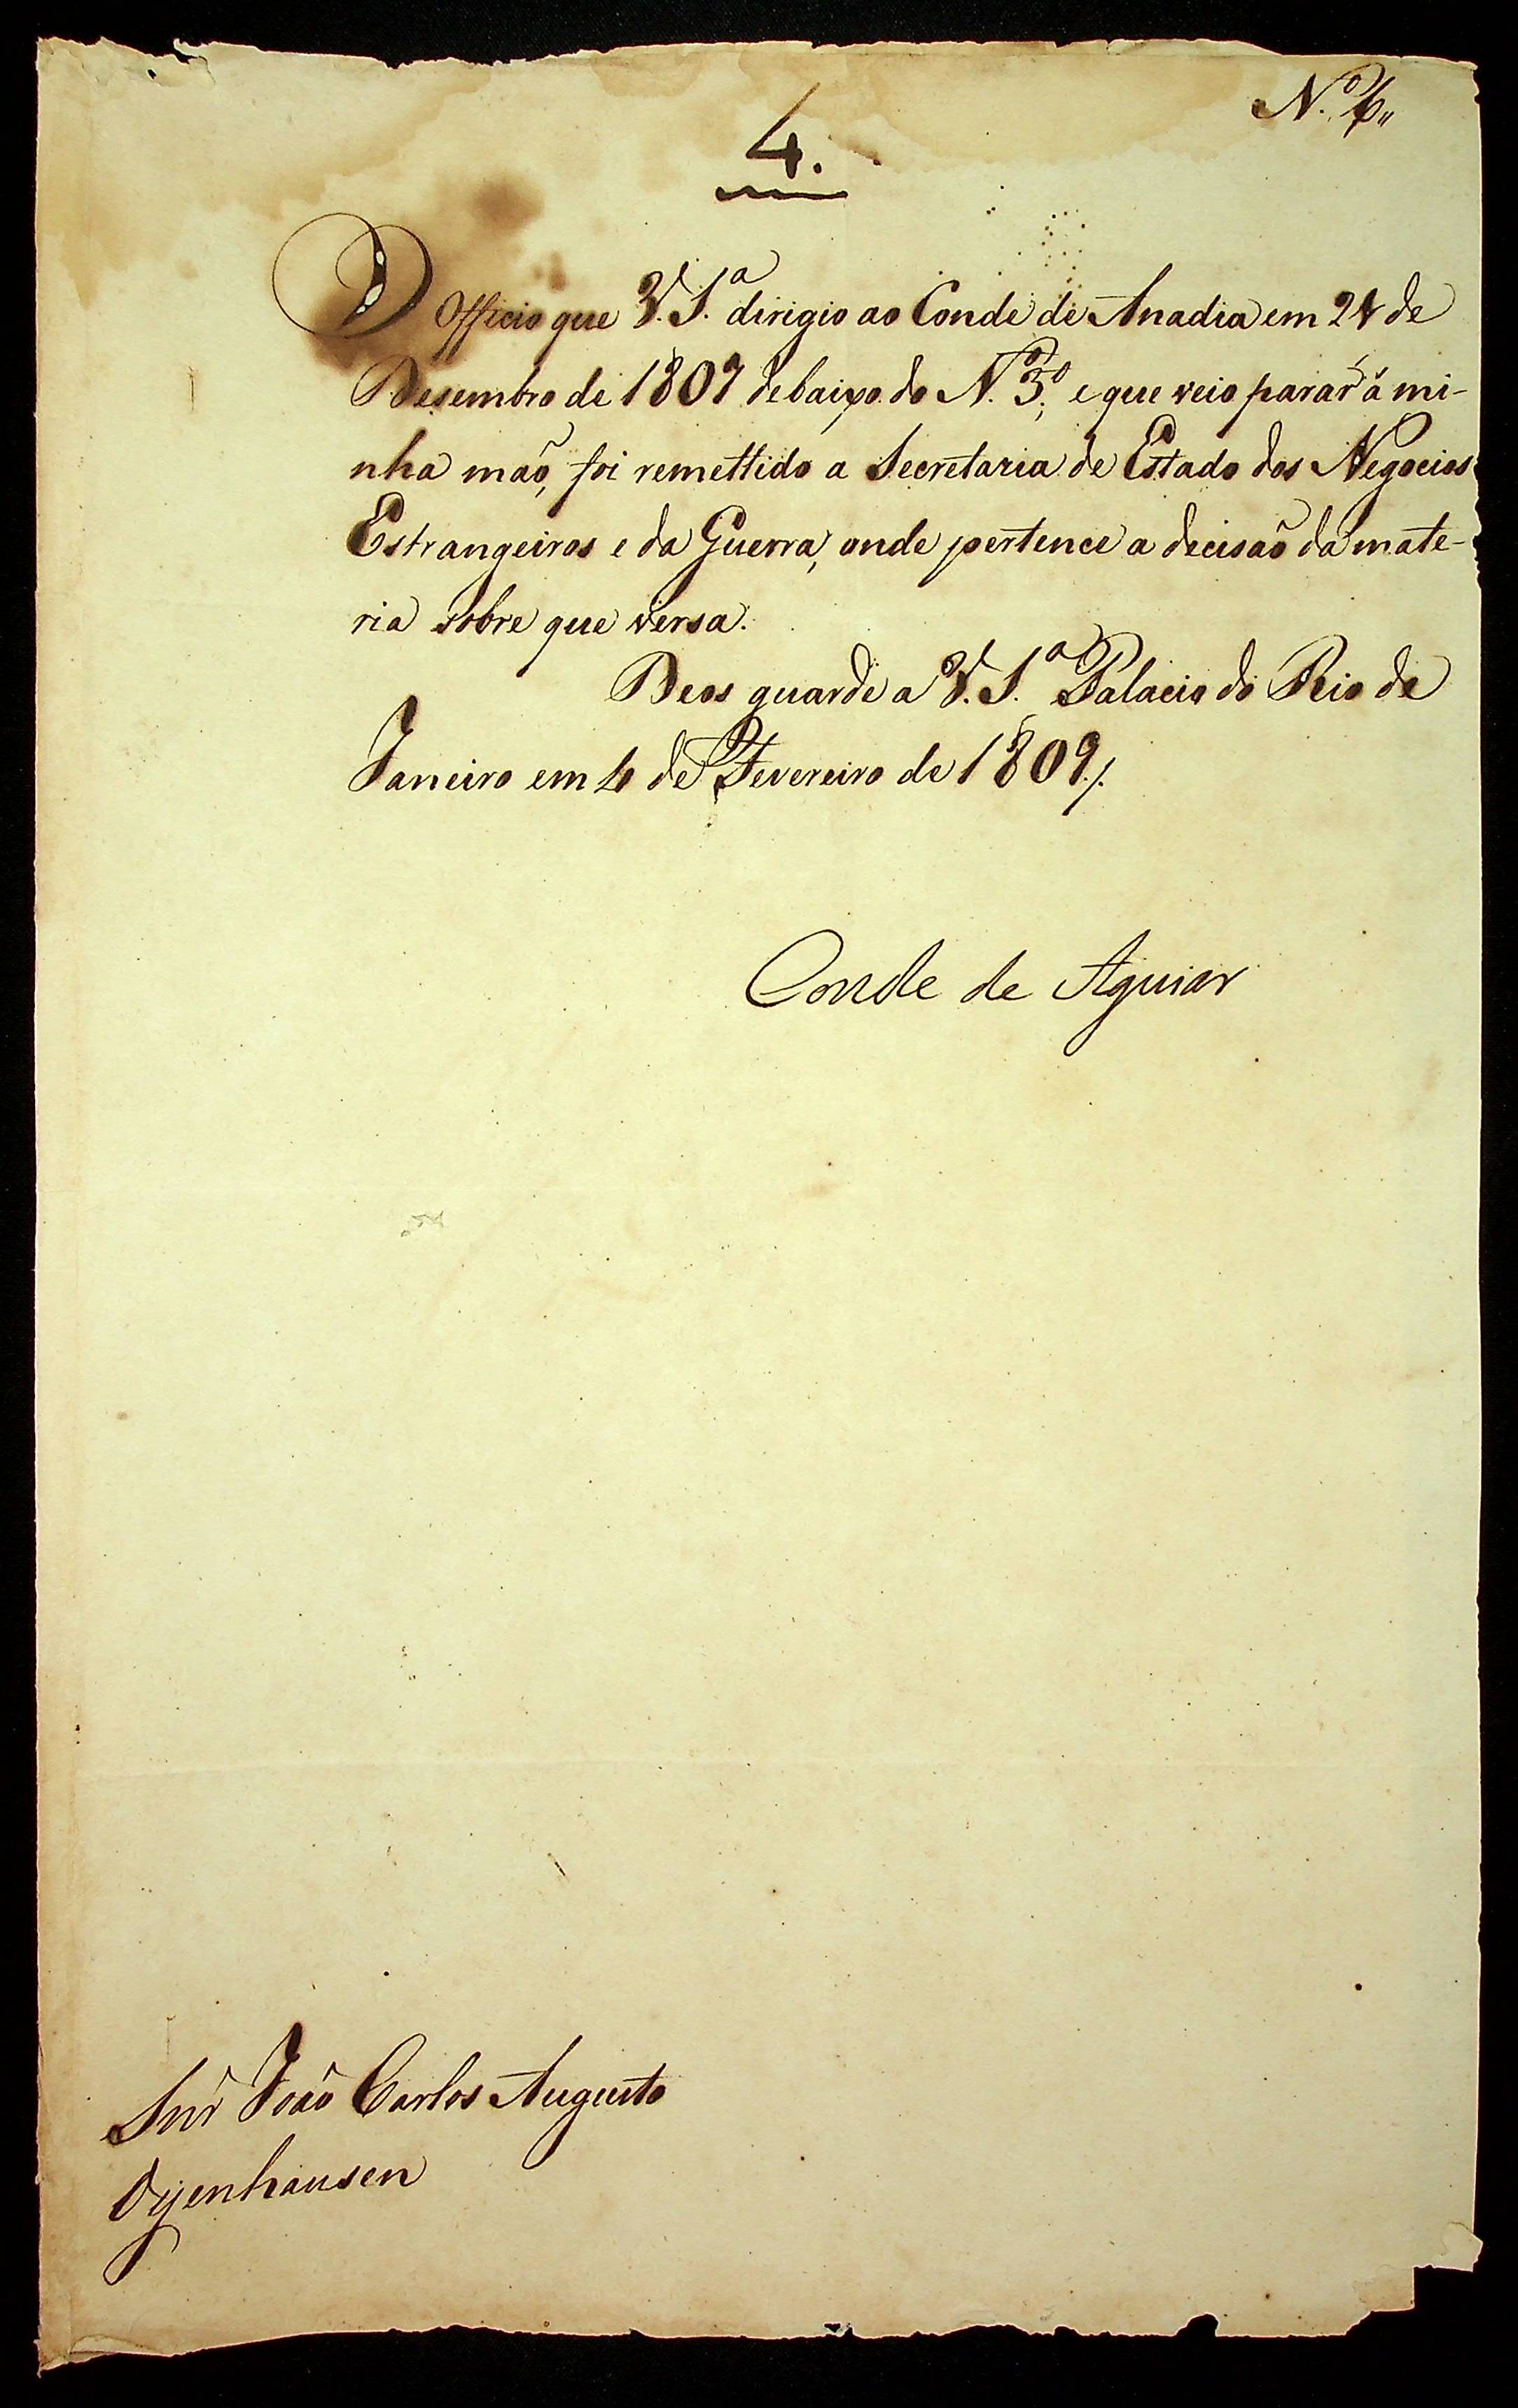 N.º 6,,
4.
O Officio que V. S.ª dirigio ao Conde de Anadia em 24 de
Desembro de 1807 debaixo do N.º 3.º, e que veio parar á mi-
nha maõ, foi remettido a Secretaria de Estado dos Negocios
Estrangeiros e da Guerra, onde pertence a decisaõ da mate-
ria sobre que versa.
Deos guarde a V. S.ª Palacio do Rio de
Janeiro em 4 de Fevereiro de 1809./.
Conde de Aguiar
Snr̃ Joaõ Carlos Augusto
Oyenhausen